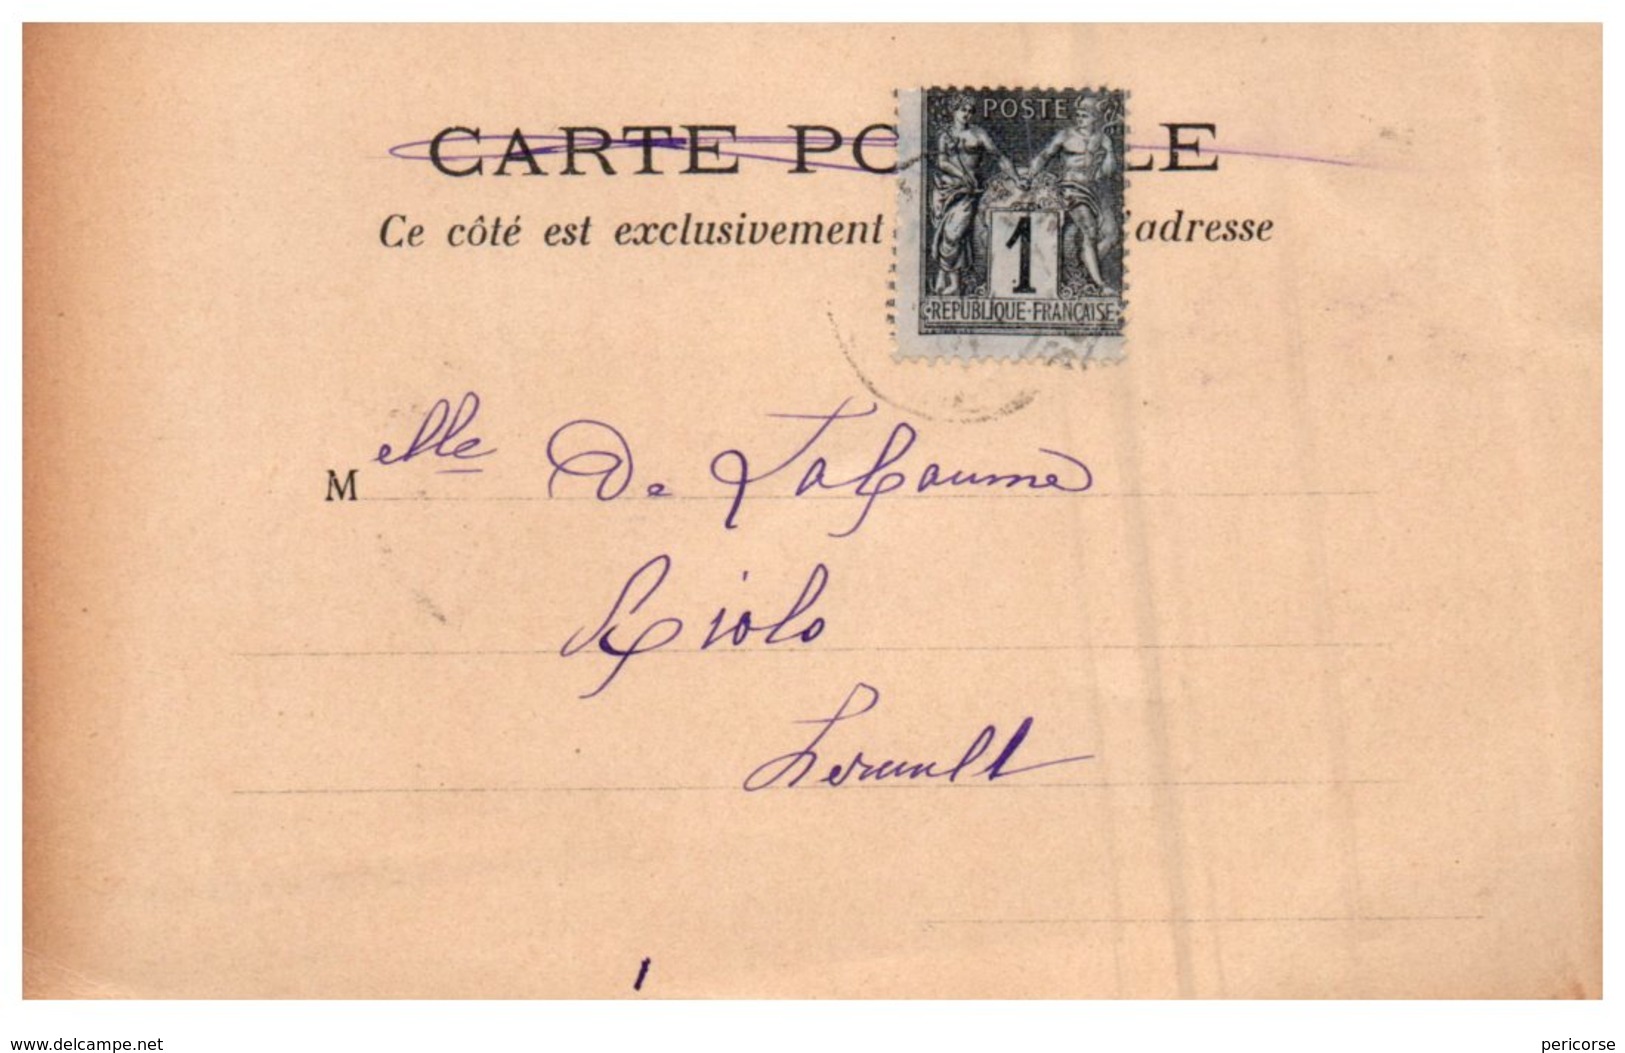 CARTE PO LE
POSTE
Ce côté est exclusivement 'adresse
1
REPUBLIQUE-FRANÇAISE
Melle De La Baume
Riols
Herault
www.delcampe.net
pericorse